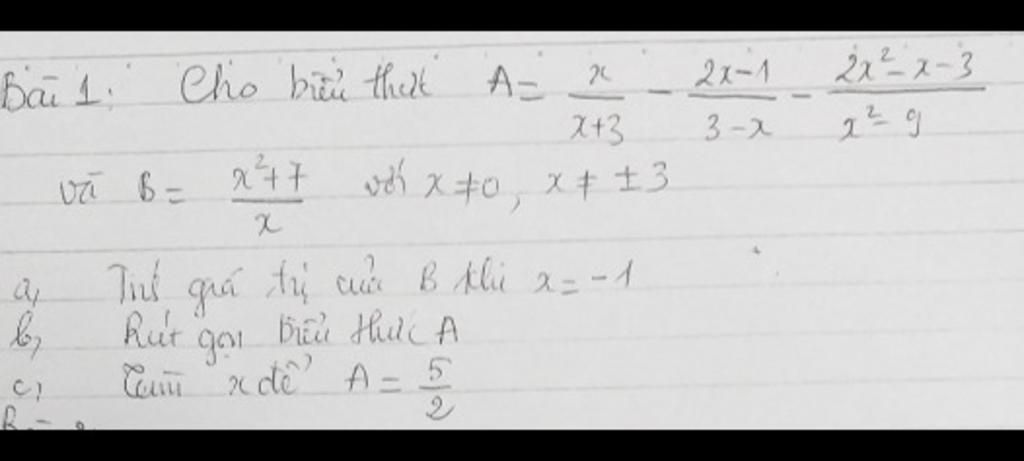 Bài 1: Cho biểu thức A = x/(x+3) - (2x-1)/(3-x) - (2x²-x-3)/(x²-9)
và B = (x²+7)/x với x ≠ 0, x ≠ ±3
a, Tính giá trị của B khi x = -1
b, Rút gọn biểu thức A
c, Tìm x để A = 5/2